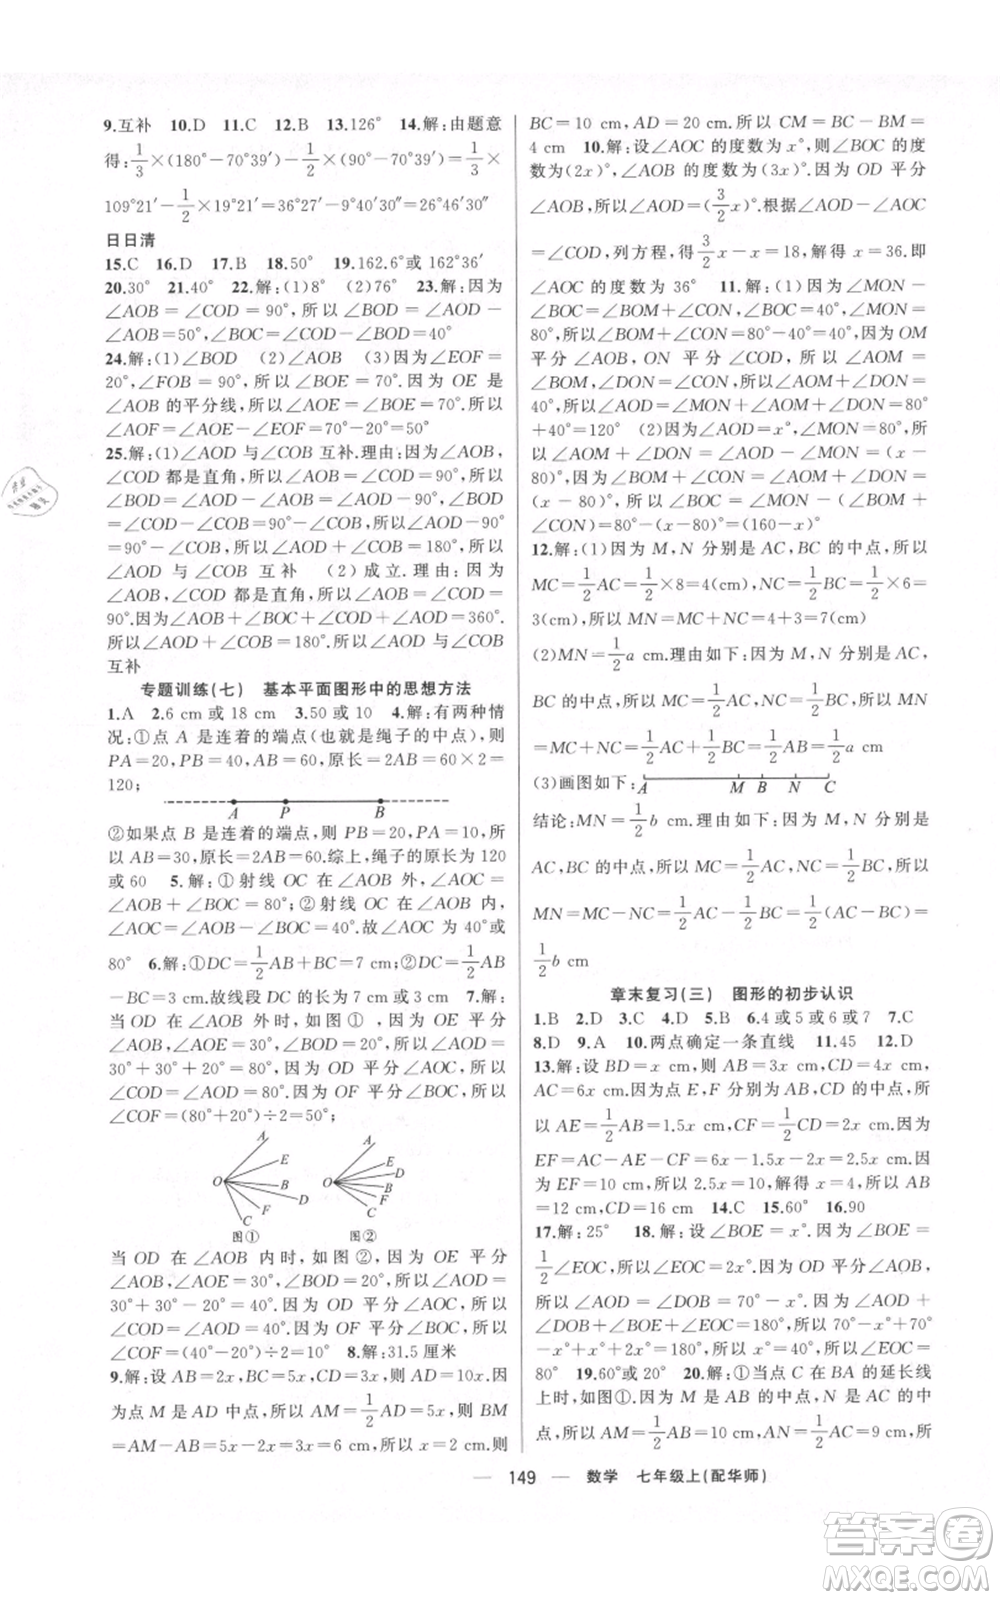 9.互补 10.D 11.C 12.B 13.126° 14.解:由题意
得:1/3×(180°-70°39′)-1/2×(90°-70°39′)=1/3×
109°21′-1/2×19°21′=36°27′-9°40′30″=26°46′30″
日日清
15.C 16.D 17.B 18.50° 19.162.6°或162°36′
20.30° 21.40° 22.解:(1)8° (2)76° 23.解:因为
∠AOB=∠COD=90°,所以∠BOD=∠AOD-
∠AOB=50°,∠BOC=∠COD-∠BOD=40°
24.解:(1)∠BOD (2)∠AOB (3)因为∠EOF=
20°,∠FOB=90°,所以∠BOE=70°.因为OE是
∠AOB的平分线,所以∠AOE=∠BOE=70°.所以
∠AOF=∠AOE-∠EOF=70°-20°=50°
25.解:(1)∠AOD与∠COB互补.理由:因为∠AOB,
∠COD都是直角,所以∠AOB=∠COD=90°,所以
∠BOD=∠AOD-∠AOB=∠AOD-90°,∠BOD
=∠COD-∠COB=90°-∠COB,所以∠AOD-90°
=90°-∠COB,所以∠AOD+∠COB=180°,所以
∠AOD与∠COB互补 (2)成立.理由:因为
∠AOB,∠COD都是直角,所以∠AOB=∠COD=
90°.因为∠AOB+∠BOC+∠COD+∠AOD=360°.
所以∠AOD+∠COB=180°,所以∠AOD与∠COB
互补
专题训练(七) 基本平面图形中的思想方法
1.A 2.6 cm或18 cm 3.50或10 4.解:有两种情
况:①点A是连着的端点(也就是绳子的中点),则
PA=20,PB=40,AB=60.所以原长=2AB=60×2=
120;
A P B
②如果点B是连着的端点,则PB=20,PA=10,所
以AB=30,原长=2AB=60.综上,绳子的原长为120
或60 5.解:①射线OC在∠AOB外,∠AOC=
∠AOB+∠BOC=80°;②射线OC在∠AOB内,
∠AOC=∠AOB-∠BOC=40°.故∠AOC为40°或
80° 6.解:①DC=1/2AB+BC=13 cm;②DC=1/2AB
-BC=3 cm.故线段DC的长为13 cm或3 cm 7.解:
当OD在∠AOB外时,如图①,因为OE平分
∠AOB,所以∠AOE=30°,∠BOD=20°,所以∠AOD=
30°+30°+20°=80°.因为OD平分∠AOC,所以
∠AOD=∠COD=80°.因为OF平分∠BOC,所以
∠COF=(80°+20°)÷2=50°;
A E B D F C O
图①
A E D B F C O
图②
当OD在∠AOB内时,如图②,因为OE平分
∠AOB,所以∠AOE=30°,∠BOD=20°,所以∠AOD=
30°+30°-20°=40°.因为OD平分∠AOC,所以
∠AOD=∠COD=40°.因为OF平分∠BOC,所以
∠COF=(40°-20°)÷2=10° 8.解:31.5厘米
9.解:设AB=2x,BC=3x,CD=5x,则AD=10x,因
为点M是AD中点,所以AM=1/2AD=5x,则BM
=AM-AB=5x-2x=3x=6,所以x=2 cm.则
BC=10 cm,AD=20 cm.所以CM=BC-BM=
4 cm 10.解:设∠AOC的度数为x°,则∠BOC的度
数为(2x)°,∠AOB的度数为(3x)°.因为OD平分
∠AOB,所以∠AOD=(3/2x)°.根据∠AOD-∠AOC
=∠COD,列方程,得3/2x-x=18,解得x=36.即
∠AOC的度数为36° 11.解:(1)因为∠MON-
∠BOC=∠BOM+∠CON,∠BOC=40°,∠MON=
80°,所以∠BOM+∠CON=80°-40°=40°.因为OM
平分∠AOB,ON平分∠COD,所以∠AOM=
∠BOM,∠DON=∠CON,所以∠AOM+∠DON=
40°,所以∠AOD=∠MON+∠AOM+∠DON=80°
+40°=120° (2)因为∠AOD=x°,∠MON=80°,所
以∠AOM+∠DON=∠AOD-∠MON=(x-
80)°,所以∠BOM+∠CON=∠AOM+∠DON=
(x-80)°,所以∠BOC=∠MON-(∠BOM+
∠CON)=80°-(x-80)°=(160-x)°
12.解:(1)因为M,N分别是AC,BC的中点,所以
MC=1/2AC=1/2×8=4(cm),NC=1/2BC=1/2×6=
3(cm),所以MN=MC+NC=4+3=7(cm)
(2)MN=1/2a cm.理由如下:因为M,N分别是AC,
BC的中点,所以MC=1/2AC,NC=1/2BC,所以MN
=MC+NC=1/2AC+1/2BC=1/2AB=1/2a cm
(3)画图如下:
A M B N C
结论:MN=1/2b cm.理由如下:因为M,N分别是
AC,BC的中点,所以MC=1/2AC,NC=1/2BC,所以
MN=MC-NC=1/2AC-1/2BC=1/2(AC-BC)=
1/2b cm
章末复习(三) 图形的初步认识
1.B 2.D 3.C 4.D 5.B 6.4或5或6或7 7.C
8.D 9.A 10.两点确定一条直线 11.45 12.D
13.解:设BD=x cm,则AB=3x cm,CD=4x cm,
AC=6x cm.因为点E,F分别为AB,CD的中点,所
以AE=1/2AB=1.5x cm,CF=1/2CD=2x cm.所以
EF=AC-AE-CF=6x-1.5x-2x=2.5x cm.因
为EF=10 cm,所以2.5x=10,解得x=4.所以AB
=12 cm,CD=16 cm 14.C 15.60° 16.90
17.解:25° 18.解:设∠BOE=x°,因为∠BOE=
1/2∠EOC,所以∠EOC=2x°.因为OD平分∠AOB,
所以∠AOD=∠DOB=70°-x°.因为∠AOD+
∠BOD+∠BOE+∠EOC=180°,所以70°-x°+70°
-x°+x°+2x°=180°,解得x°=40°,所以∠EOC=
80° 19.60°或20° 20.解:①当点C在BA的延长线
上时,如图①.因为M是AB的中点,N是AC的中
点,所以AM=1/2AB=15 cm,AN=1/2AC=9 cm,所
— 149 — 数学 七年级上(配华师)
答案卷